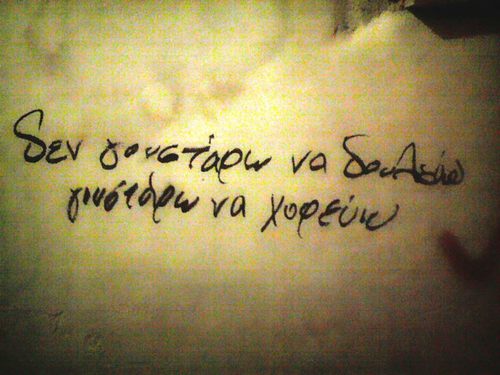 δεν γουστάρω να δουλεύω
γουστάρω να χορεύω